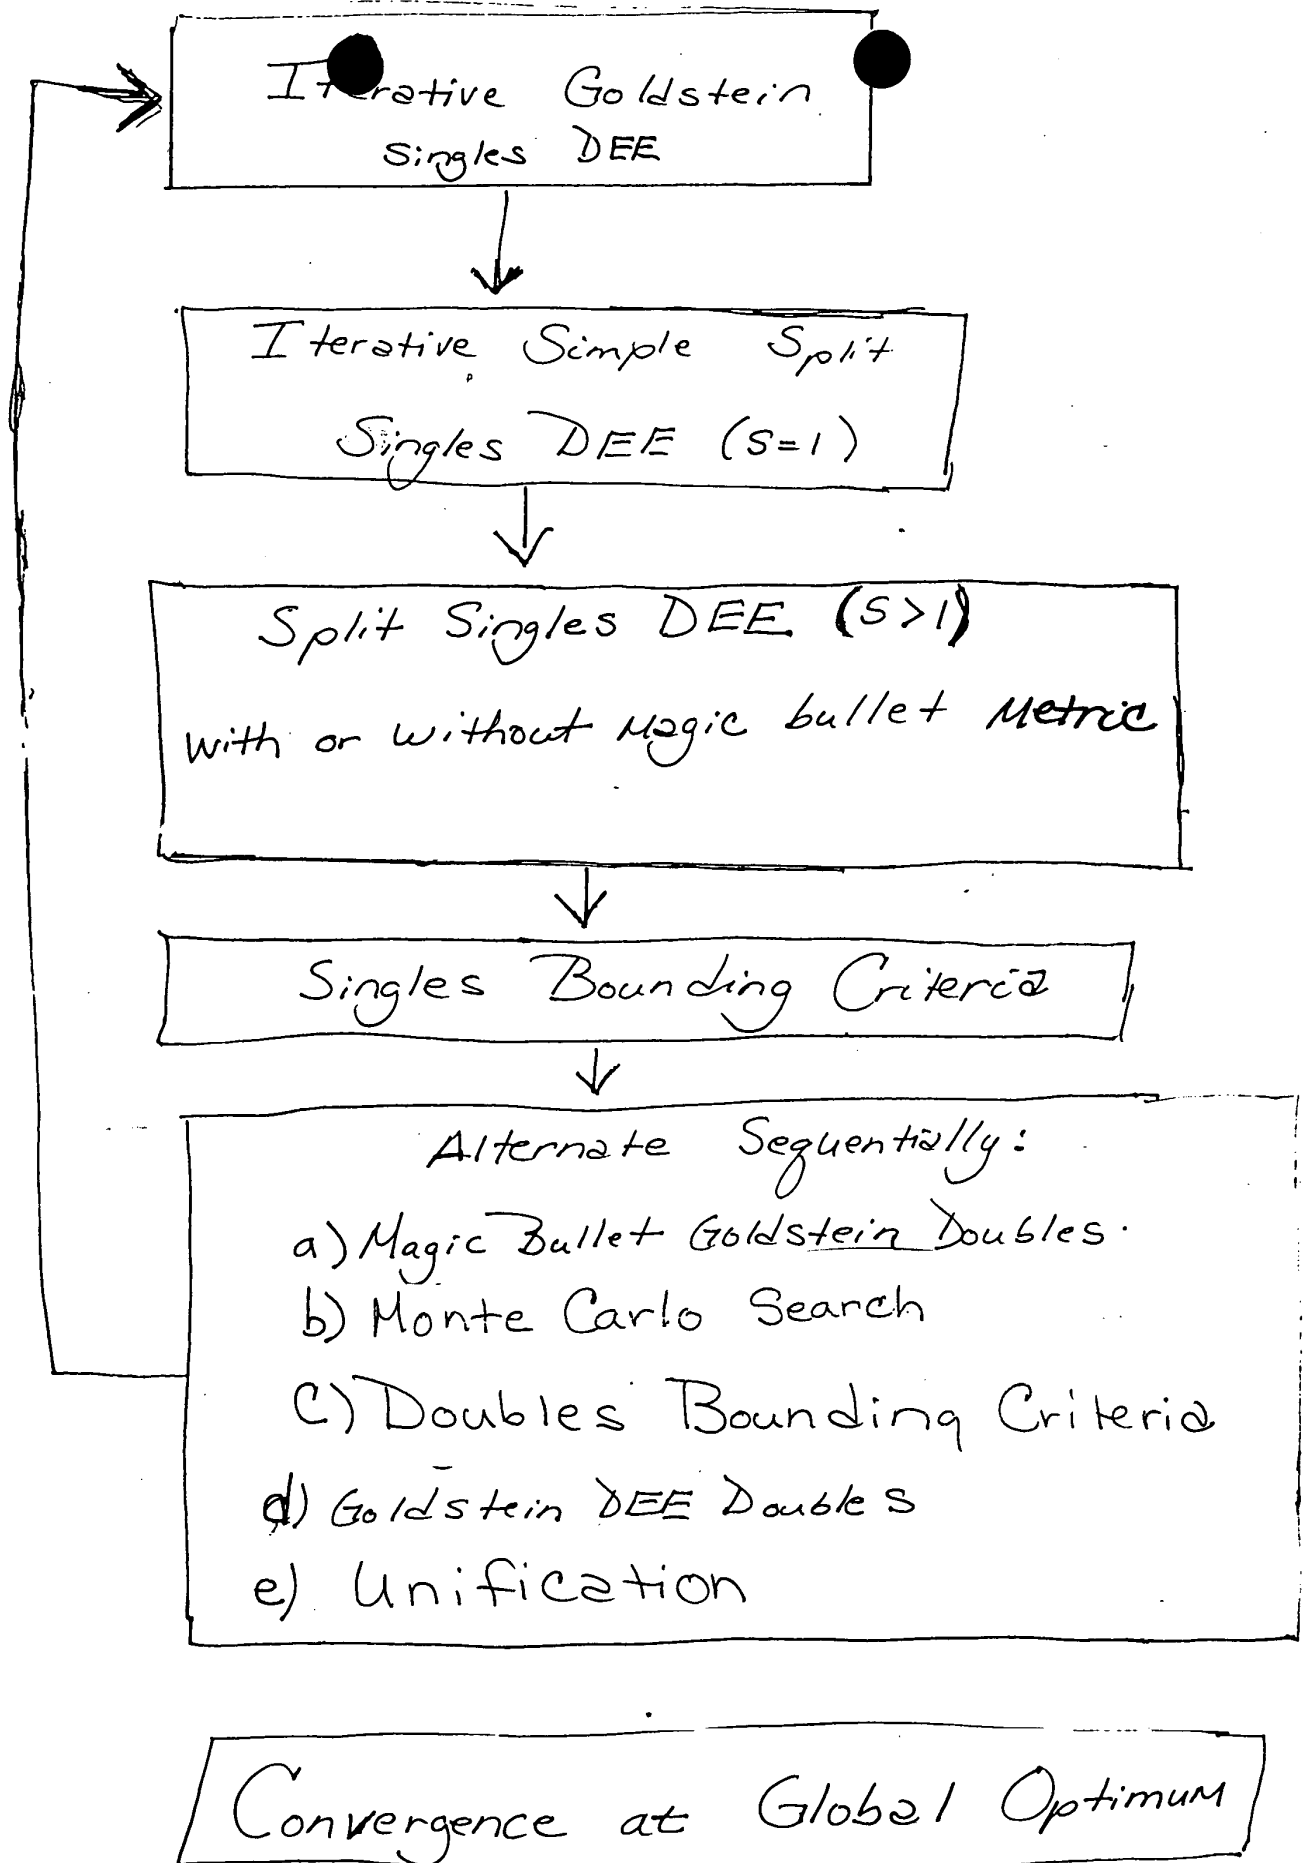 Iterative Goldstein
Singles DEE
Iterative Simple Split
Singles DEE (S=1)
Split Singles DEE (S>1)
With or without Magic bullet Metric
Singles Bounding Criteria
Alternate Sequentially:
a) Magic Bullet Goldstein Doubles.
b) Monte Carlo Search
c) Doubles Bounding Criteria
d) Goldstein DEE Doubles
e) Unification
Convergence at Global Optimum